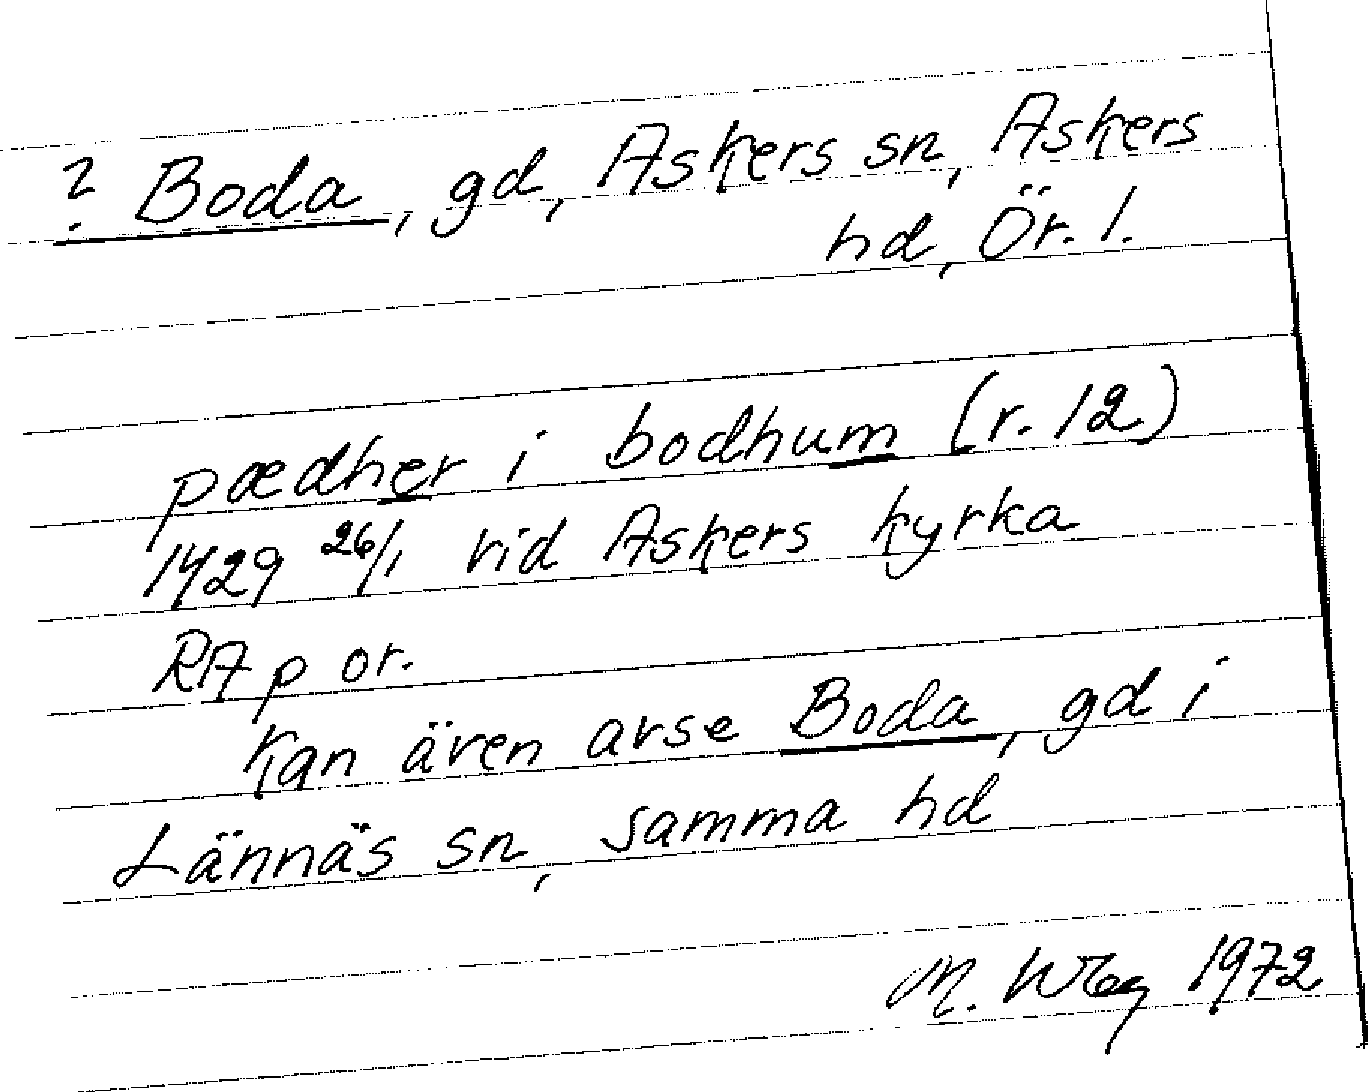 ? Boda, gd, Askers sn, Askers
hd, Ör. l.
pædher i bodhum (r. 12)
1429 26/1 vid Askers kyrka
RAp or.
Kan även avse Boda, gd i
Lännäs sn, samma hd
M. 1972